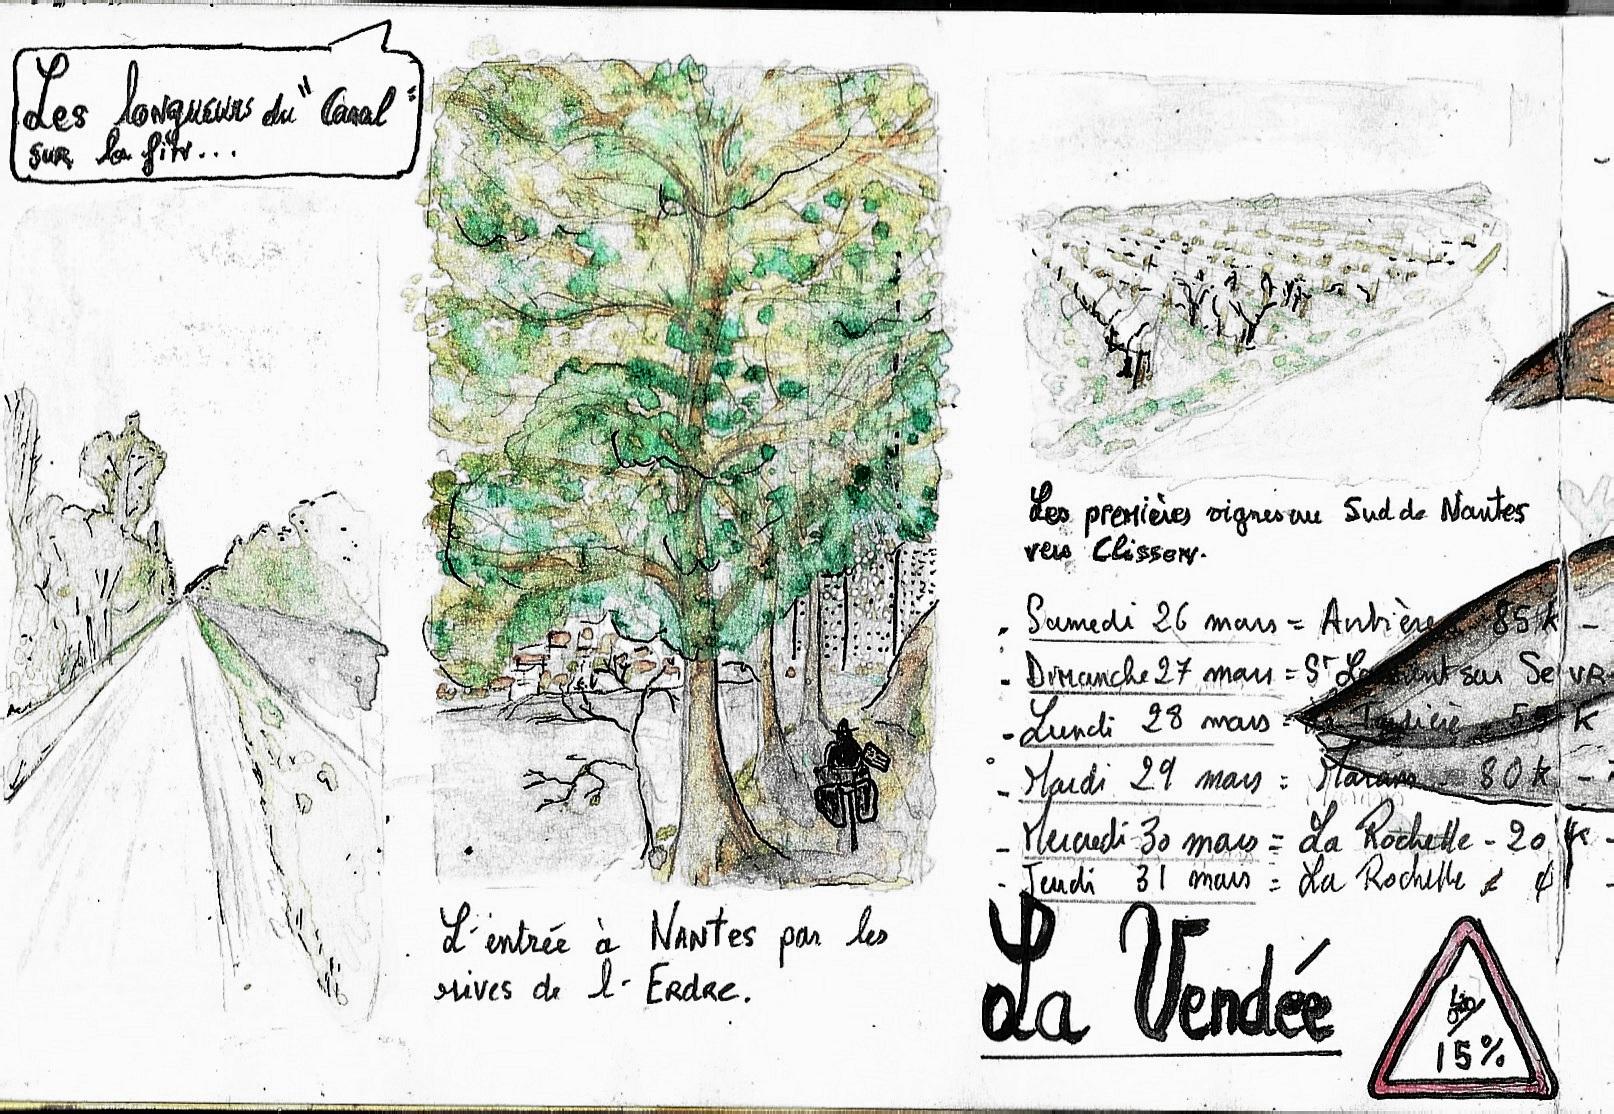 Les longueurs du "Canal"
sur la fin...
L'entrée à NANTES par les
rives de l'ERDRE.
Les premières vignes au Sud de Nantes
vers Clisson.
. Samedi 26 mars = 85 k -
- Dimanche 27 mars = St Laurent sur Sevre
- Lundi 28 mars = La 55 k
- Mardi 29 mars = Marans 80 k -
- Mercredi 30 mars = La Rochelle - 20 k -
- Jeudi 31 mars = La Rochelle
La Vendée
15%